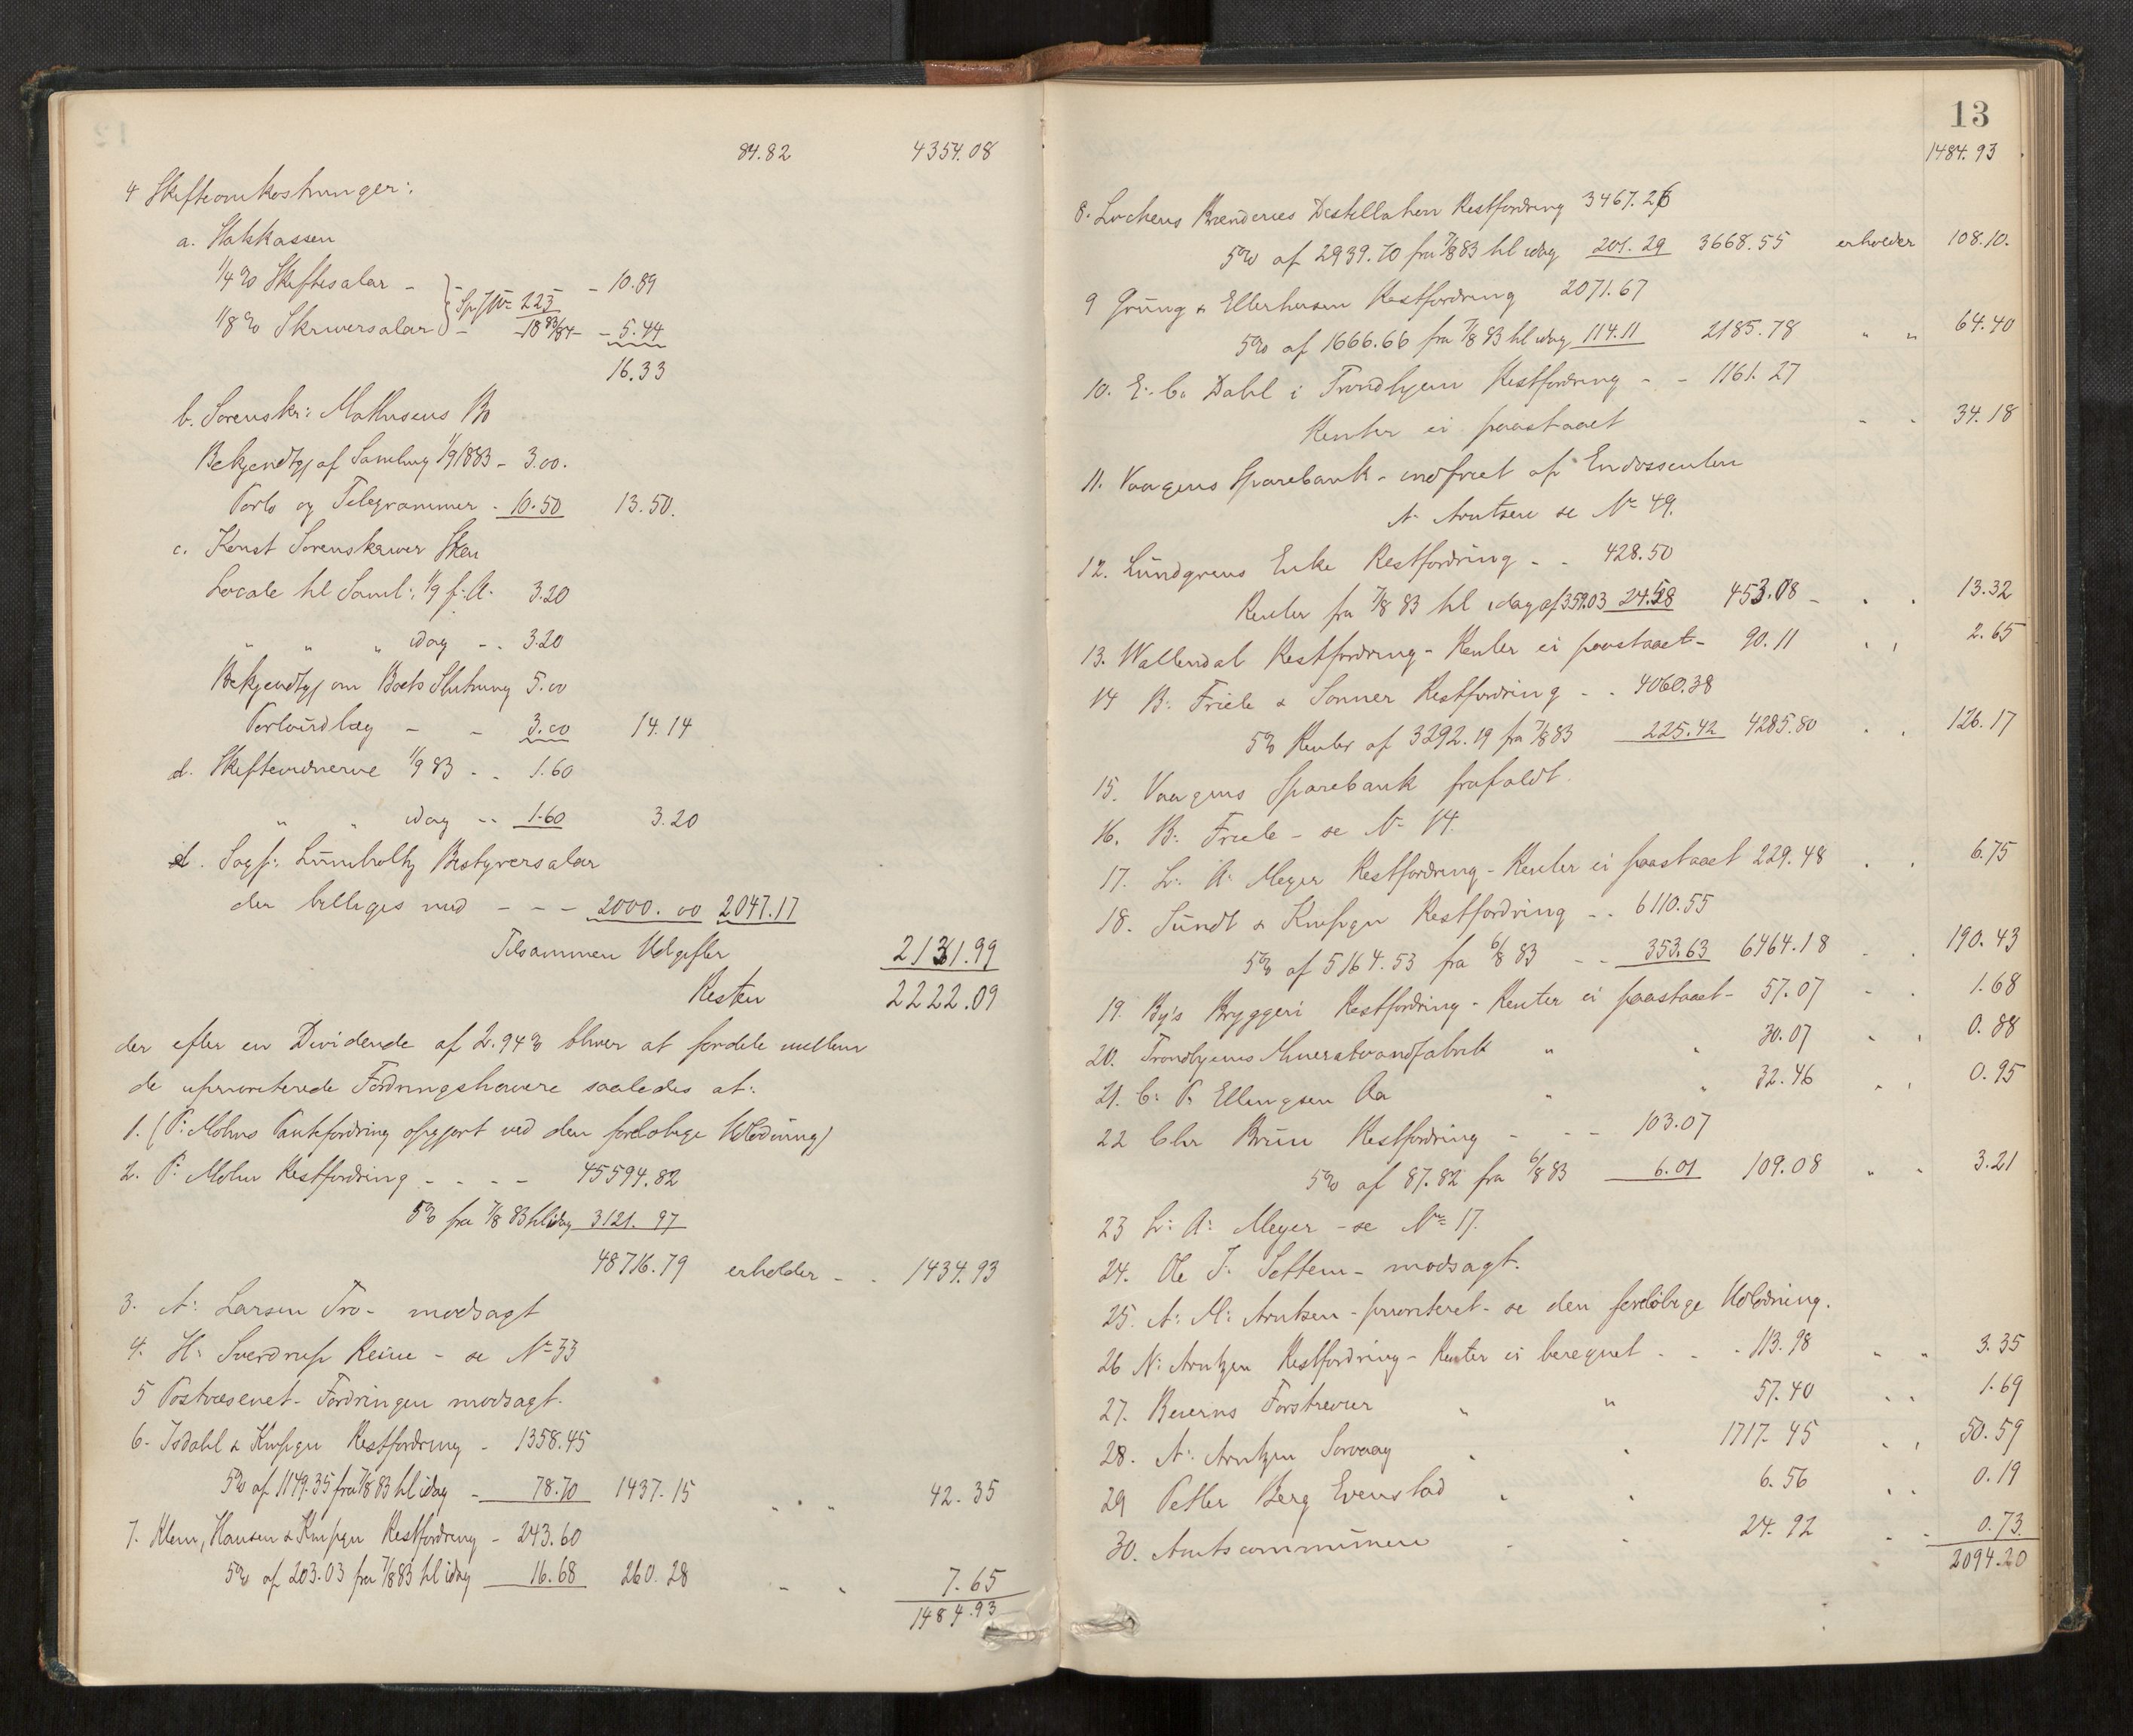 84.82 4354.08
4 Skifteomkostninger:
a. Statskassen
1/4 % Skiftesalar - - 10.89
1/8 % Skriversalar - 1883/84 - 5.44
225
16.33
b. Sorenskr: Mathisens Bo
Bekjendtg af Samling 1/9 1883 - 3.00.
Porto og Telegrammer - 10.50 13.50.
c. Konst Sorenskriver
Locale til Saml: 1/9 f. A. 3.20
" " " idag - . 3.20
Bekjendtg om Boets Slutning 5.00
Portoudlæg - - 3.00 14.14
d. Skiftevidnerne 1/9 83 - . 1.60
" " idag - - 1.60 3.20
d. Sagf: Lumholtz Bestyrersalar
der billiges med - - - 2000.00 2047.17
Tilsammen Udgifter 2131.99
Resten 2222.09
der efter en Dividende af 2.94 % bliver at fordele mellem
de uprioriterede Fordringshavere saaledes at:
1. (P. Mohns Pantefordring opgjort ved den foreløbige Udlodning)
2. P. Mohn Restfordring - - - - 45594.82
5 % fra 7/8 83 til idag 3121.97
48716.79 erholder - . 1434.93
3. A: Larsen Tro - modsagt
4. H: Sverdrup Reine - se No 33
5 Postvæsenet - Fordringen modsagt.
6 - Isdahl & Kompgn Restfordring - 1358.45
5 % af 1149.35 fra 7/8 83 til idag - 78.70 1437.15 " " 42.35
7. Klem, Hansen & Kompgn Restfordring - 243.60
5 % af 203.03 fra 7/8 83 til idag 16.68 260.28 - " 7.65
1484.93
13
1484.93
8. Lochens Brænderies Destillation Restfordring 3467.26
5 % af 2939.70 fra 7/8 83 til idag 201.29 3668.55 erholder 108.10.
9 Grüng & Ellerhusen Restfordring 2071.67
5 % af 1666.66 fra 7/8 83 til idag 114.11 2185.78 " " 64.40
10. E. C. Dahl i Trondhjem Restfordring - - 1161.27
Renter ei paastaaet " " 34.18
11. Vaagens Sparebank - indfriet af Endossenten
A. Arntzen se No 49.
12. Lundgrens Enke Restfordring - . 428.50
Renter fra 7/8 83 til idag af 359.03 24.58 453.08 - . . 13.32
13. Wallendal Restfordring - Renter ei paastaaet - 90.11 " " 2.65
14 B. Friele & Sønner Restfordring - . 4060.38
5 % Renter af 3292.19 fra 7/8 83 225.42 4285.80 . . 126.17
15. Vaagens Sparebank frafaldt.
16. B. Friele - se No 14.
17. L: A: Meyer Restfordring - Renter ei paastaaet 229.48 . . 6.75
18. Sundt & Kompgn Restfordring - . 6110.55
5 % af 5164.53 fra 6/8 83 - - 353.63 6464.18 . . 190.43
19. By's Bryggeri Restfordring - Renter ei paastaaet - 57.07 - . 1.68
20. Trondhjems Mineralvandfabrik " " 30.07 " " 0.88
21. C. P. Ellingsen Aa " " 32.46 " " 0.95
22 Chr Bruun Restfordring - - - 103.07
5 % af 87.82 fra 6/8 83 6.01 109.08 " " 3.21
23 L: A: Meyer - se No 17.
24. Ole J. Settem - modsagt.
25. A: M: Arntzen - prioriteret - se den foreløbige Udlodning.
26 N: Arntzen Restfordring - Renter ei beregnet . . - 113.98 " " 3.35
27. Beierns Forstrevier " " 57.40 . . 1.69
28. A: Arntzen Sorvaag " " 1717.45 . . 50.59
29 Petter Berg Evenstad " " 6.56 . . 0.19
30. Amtscommunen " " 24.92 - - 0.73.
2094.20